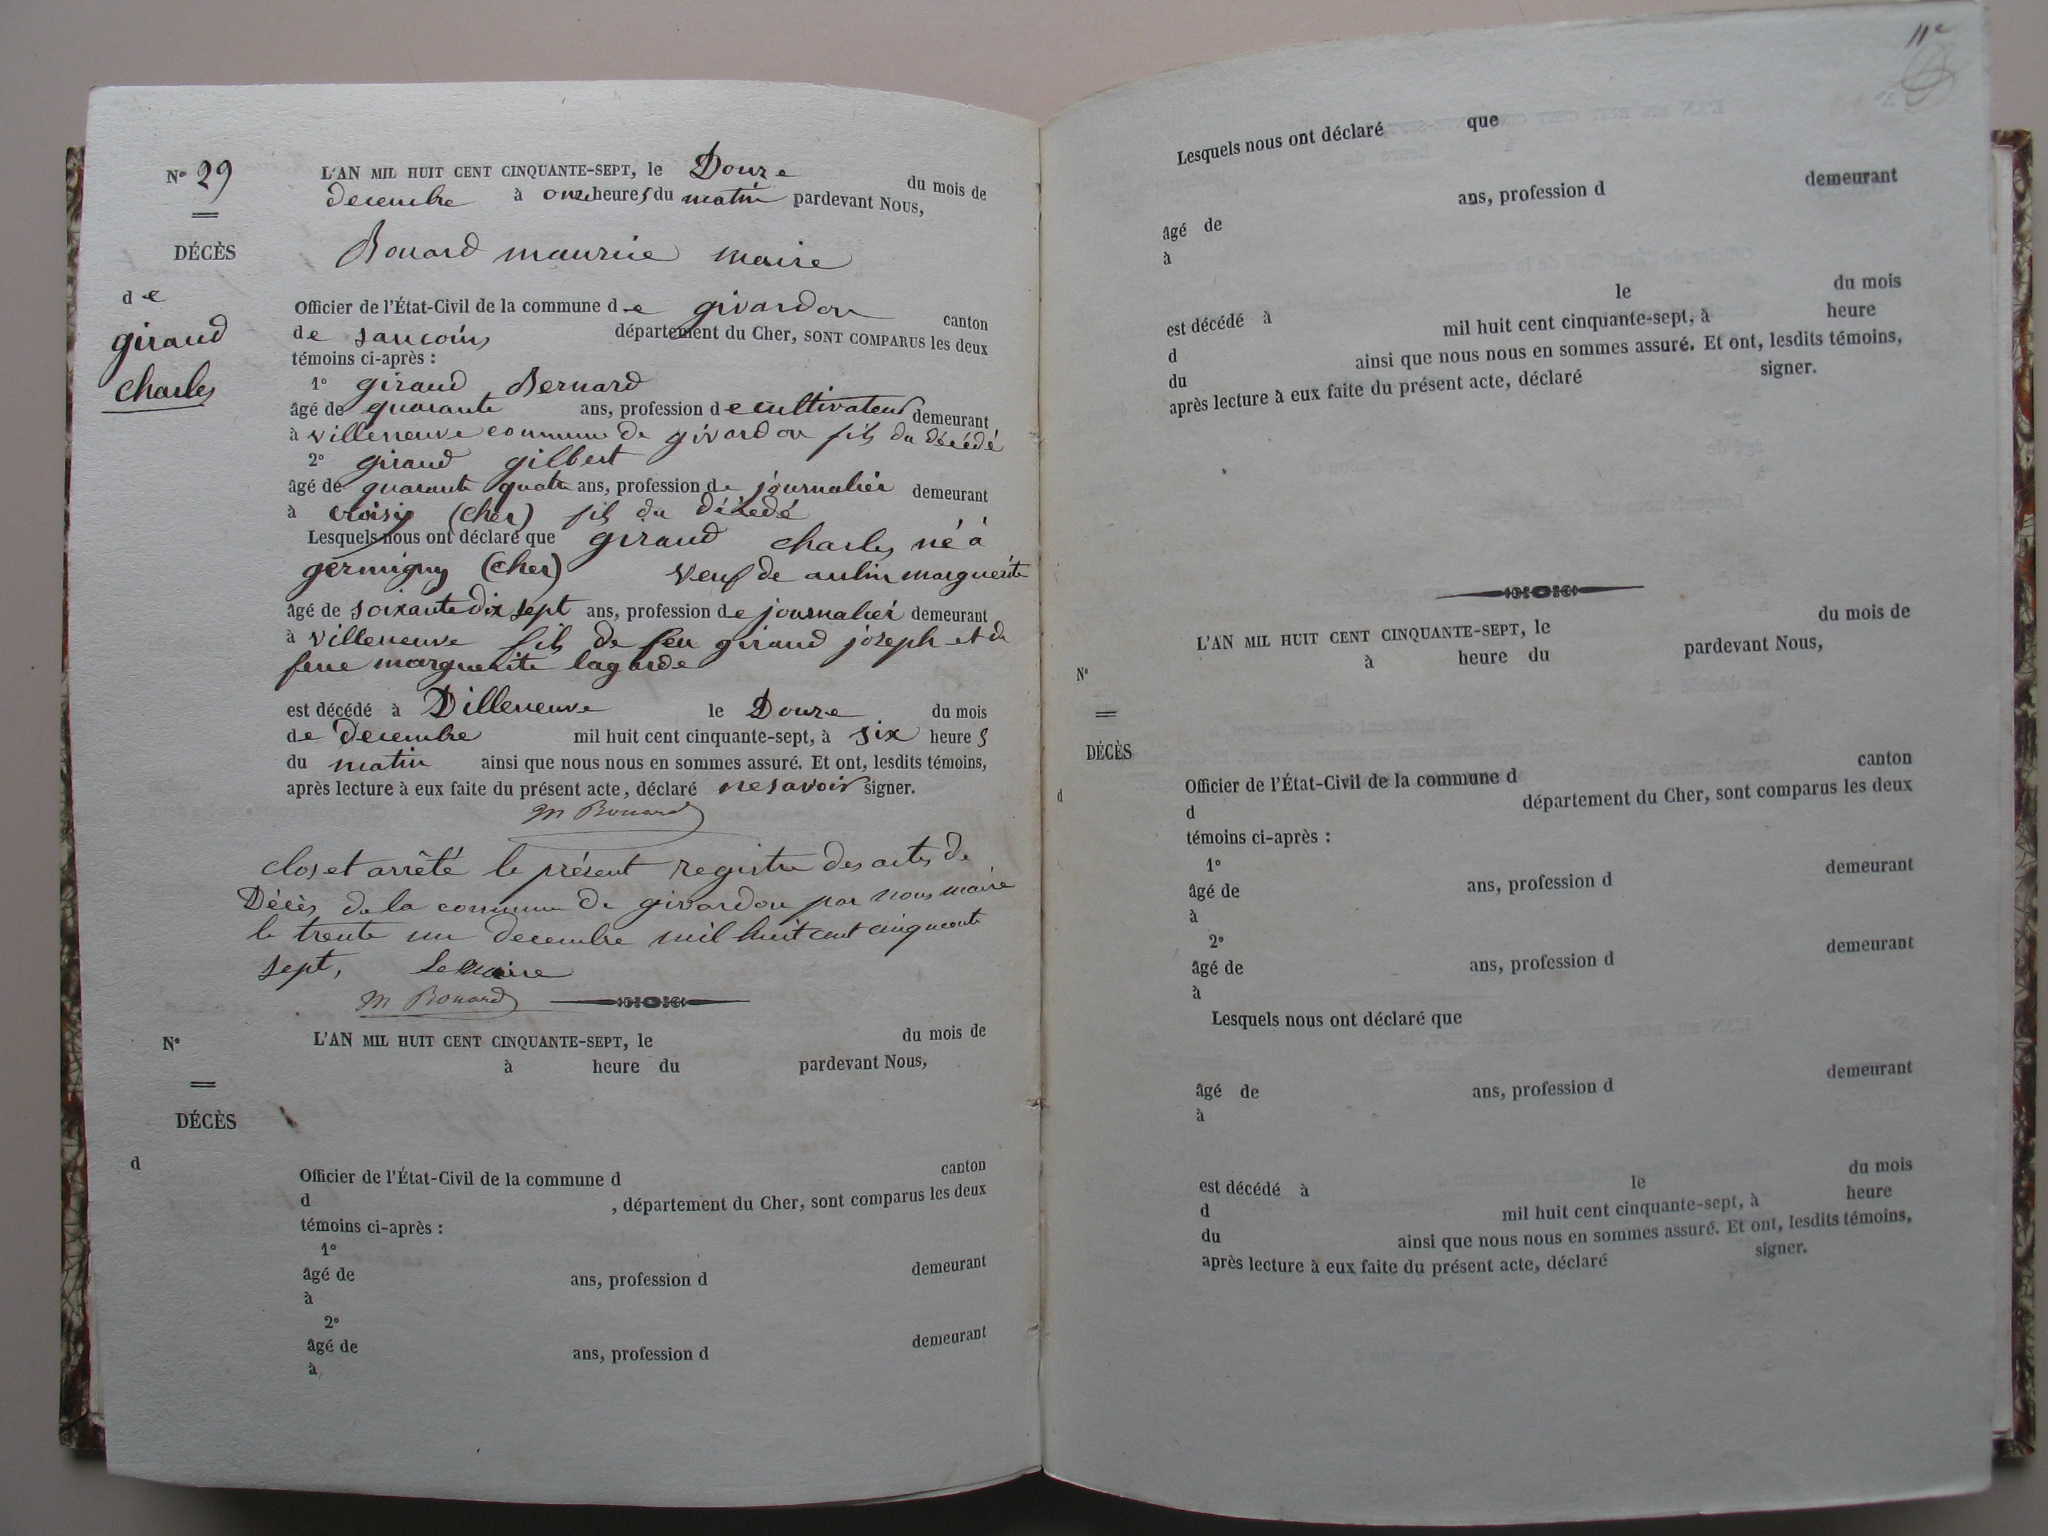 N° 29
DÉCÈS
de
giraud
charles
L'AN MIL HUIT CENT CINQUANTE-SEPT, le Douze du mois de
decembre à onze heures du matin pardevant Nous,
Bouard maurice maire
Officier de l'État-Civil de la commune de givardon canton
de sancoins département du Cher, SONT COMPARUS les deux
témoins ci-après :
1° giraud Bernard
âgé de quarante ans, profession de cultivateur demeurant
à villeneuve commune de givardon fils du décédé
2° giraud gilbert
âgé de quarante quatre ans, profession de journalier demeurant
à croisy (cher) fils du décédé
Lesquels nous ont déclaré que giraud charles né à
germigny (cher) veuf de aulin marguerite
âgé de soixante dix sept ans, profession de journalier demeurant
à villeneuve fils de feu giraud joseph et de
feue marguerite lagarde
est décédé à Villeneuve le Douze du mois
de decembre mil huit cent cinquante-sept, à six heures
du matin ainsi que nous nous en sommes assuré. Et ont, lesdits témoins,
après lecture à eux faite du présent acte, déclaré ne savoir signer.
M Bouard
clos et arrêté le présent registre des actes de
Décès de la commune de givardon par nous maire
le trente un decembre mil huit cent cinquante
sept, Le Maire
M Bouard
N°
DÉCÈS
d
L'AN MIL HUIT CENT CINQUANTE-SEPT, le du mois de
à heure du pardevant Nous,
Officier de l'État-Civil de la commune d canton
d , département du Cher, sont comparus les deux
témoins ci-après :
1°
âgé de ans, profession d demeurant
à
2°
âgé de ans, profession d demeurant
à
11e
Lesquels nous ont déclaré que
âgé de ans, profession d demeurant
à
est décédé à le du mois
d mil huit cent cinquante-sept, à heure
du ainsi que nous nous en sommes assuré. Et ont, lesdits témoins,
après lecture à eux faite du présent acte, déclaré signer.
N°
DÉCÈS
d
L'AN MIL HUIT CENT CINQUANTE-SEPT, le du mois de
à heure du pardevant Nous,
Officier de l'État-Civil de la commune d canton
d département du Cher, sont comparus les deux
témoins ci-après :
1°
âgé de ans, profession d demeurant
à
2°
âgé de ans, profession d demeurant
à
Lesquels nous ont déclaré que
âgé de ans, profession d demeurant
à
est décédé à le du mois
d mil huit cent cinquante-sept, à heure
du ainsi que nous nous en sommes assuré. Et ont, lesdits témoins,
après lecture à eux faite du présent acte, déclaré signer.